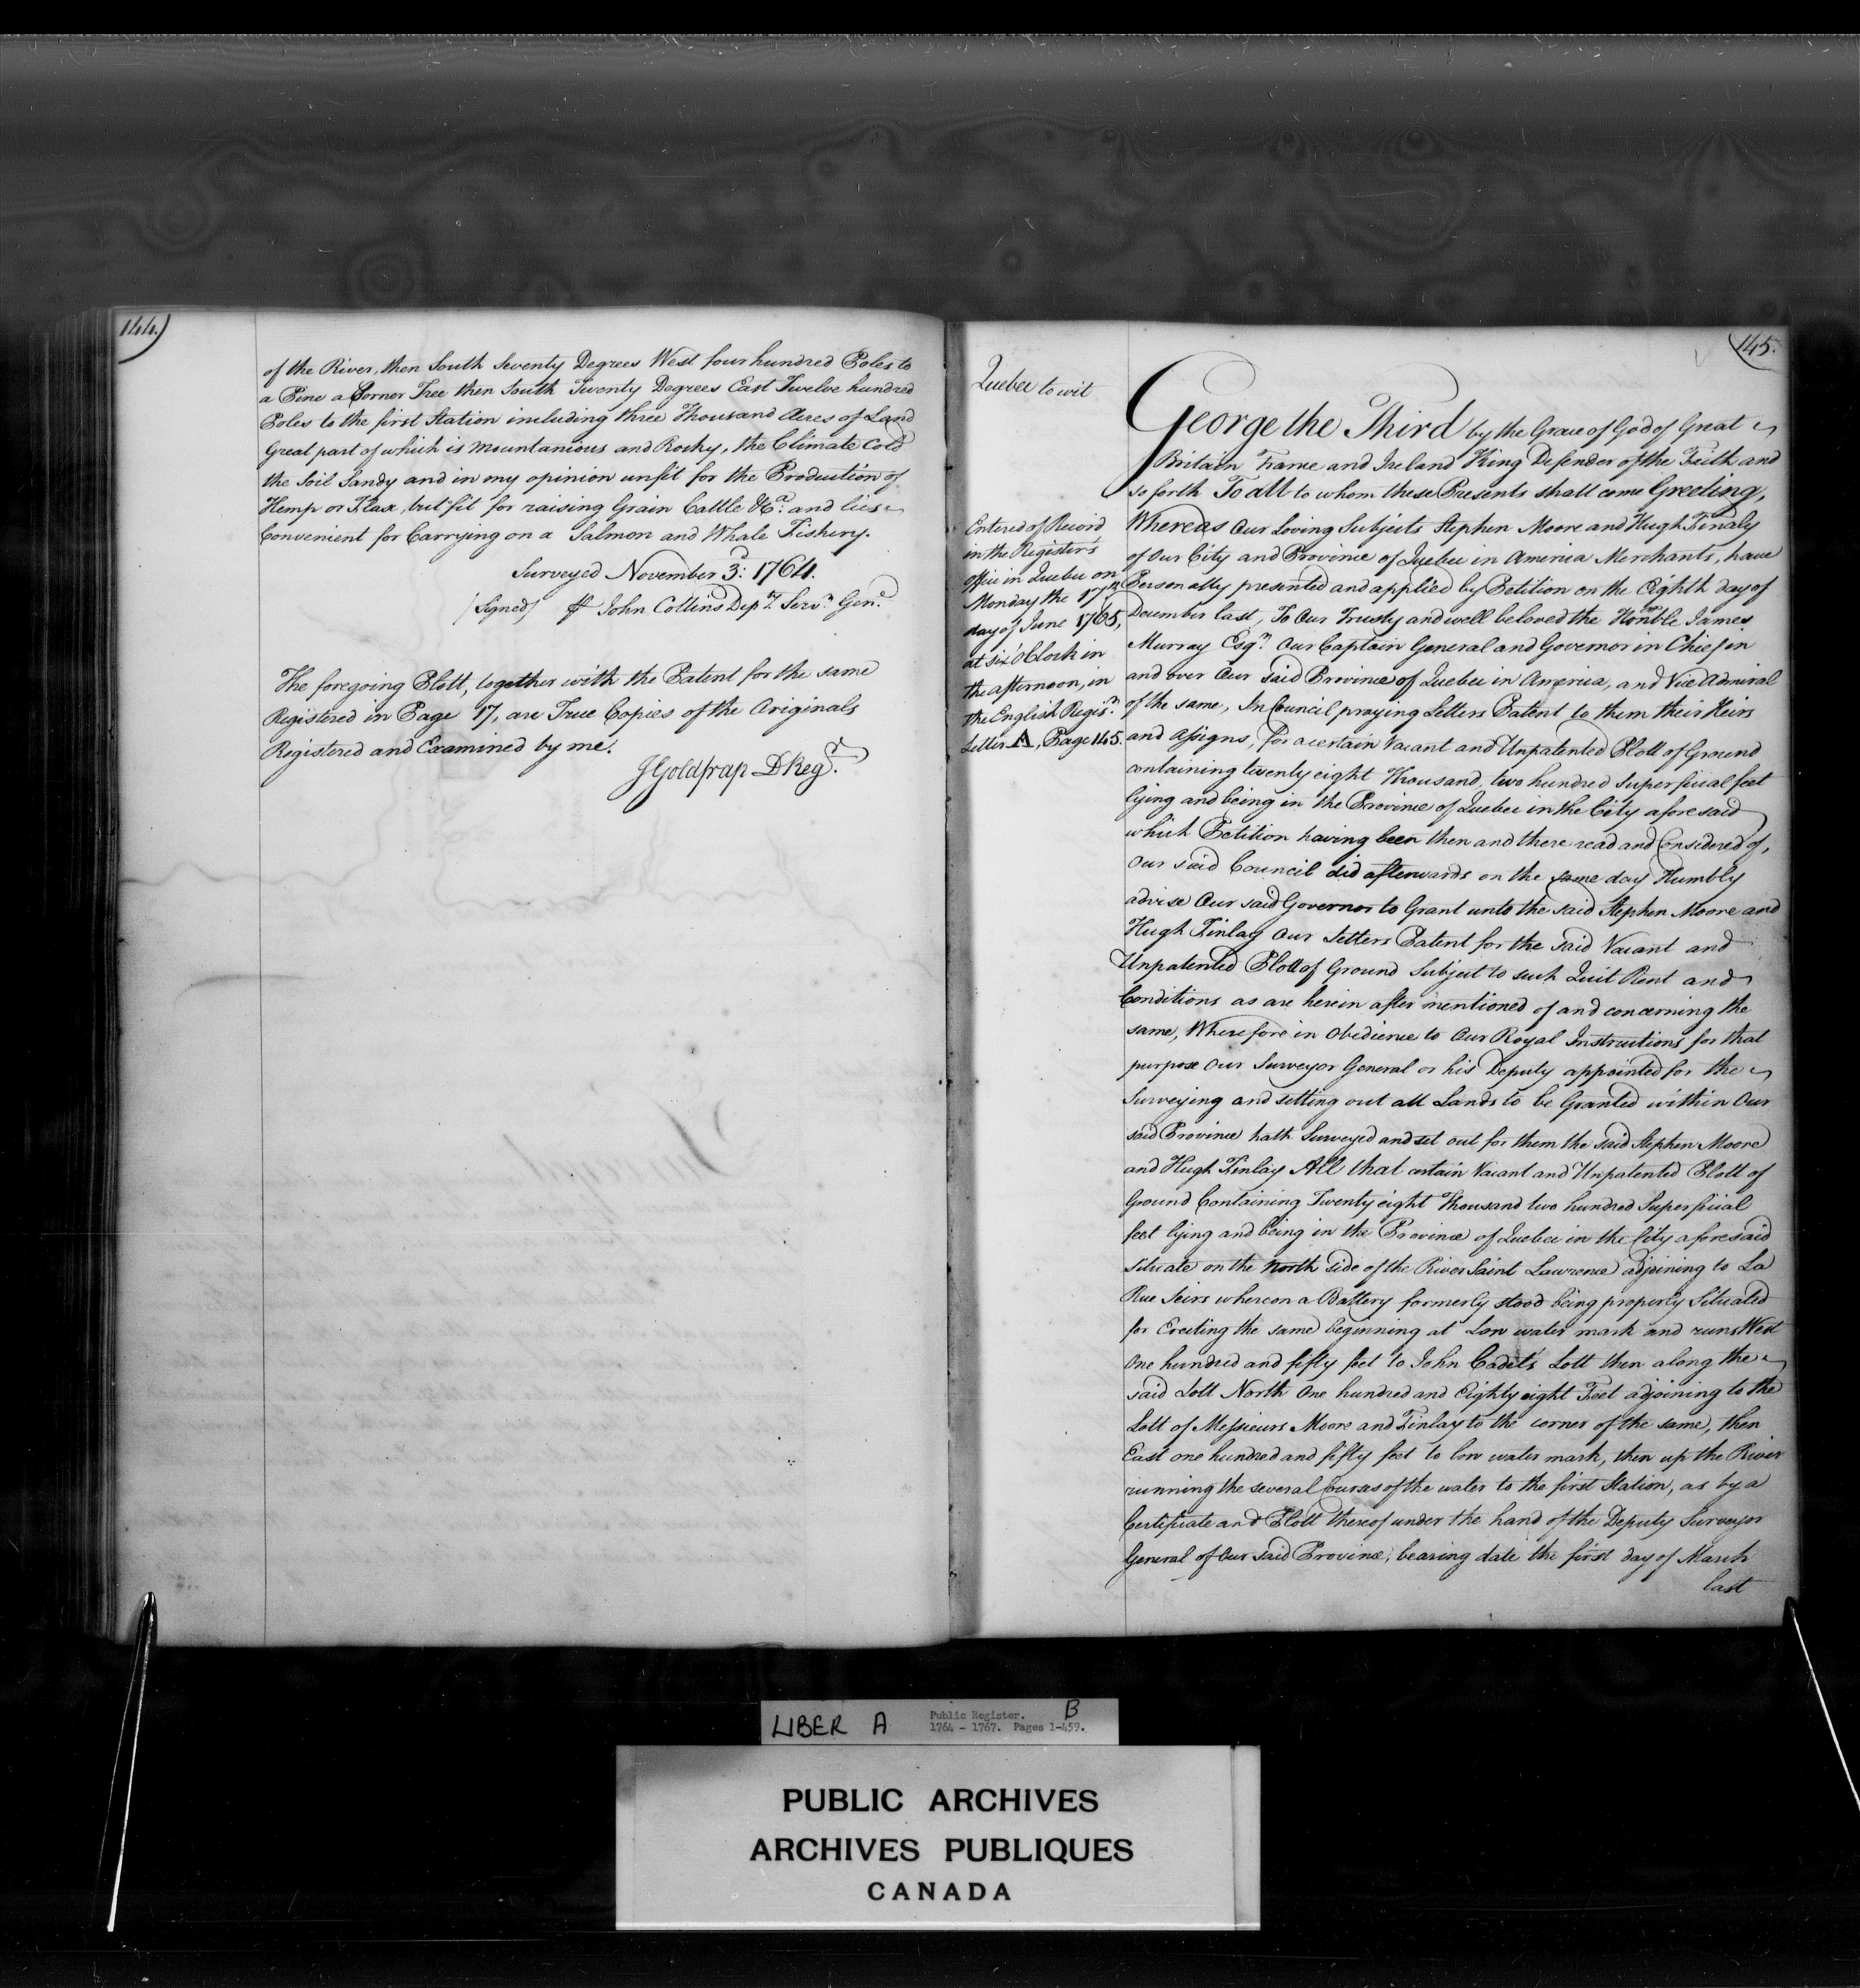 144.
of the River, then South Seventy Degrees West four hundred Poles to
a Pine a Corner Tree then South Twenty Degrees East Twelve hundred
Poles to the first Station including three Thousand Acres of Land
Great part of which is Mountanious and Rocky, the Climate Cold
the Soil Sandy and in my opinion unfit for the Production of
Hemp or Flax, but fit for raising Grain Cattle &Ca. and lies
Convenient for Carrying on a Salmon and Whale Fishery.
Surveyed November 3d: 1764.
(Signed) John Collins Depy. Servr. Genl.
The foregoing Plott, together with the Patent for the same
Registered in Page 17, are True Copies of the Originals
Registered and Examined by me.
JGoldfrap DRegr.
145.
Quebec to wit
Entered of Record
in the Register's
office in Quebec on
Monday the 17th
day of June 1765,
at six o'Clock in
the afternoon, in
the English Regisr.
Letter A, Page 145.
George the Third by the Grace of God of Great
Britain France and Ireland King Defender of the Faith and
so forth To all to whom these Presents shall come Greeting,
Whereas Our Loving Subjects Stephen Moore and Hugh Finaly
of Our City and Province of Quebec in America Merchants, have
Personally presented and applied by Petition on the Eighth day of
December last, To Our Trusty and well beloved the Honble James
Murray Esqr. Our Captain General and Governor in Chief in
and over Our said Province of Quebec in America, and Vice Admiral
of the same, In Council praying Letters Patent to them their Heirs
and Assigns, for a certain Vacant and Unpatented Plott of Ground
containing twenty eight Thousand, two hundred Superficial feet
lying and being in the Province of Quebec in the City aforesaid
which Petition having been then and there read and Considered of,
Our said Council did afterwards on the same day Humbly
advise Our said Governor to Grant unto the said Stephen Moore and
Hugh Finlay Our Letters Patent for the said Vacant and
Unpatented Plott of Ground Subject to such Quit Rent and
Conditions as are herein after mentioned of and concerning the
same, Wherefore in Obedience to Our Royal Instructions for that
purpose Our Surveyor General or his Deputy appointed for the
Surveying and setting out all Lands to be Granted within Our
said Province hath Surveyed and set out for them the said Stephen Moore
and Hugh Finlay All that certain Vacant and Unpatented Plott of
Ground Containing Twenty eight Thousand two hundred Superficial
feet lying and being in the Province of Quebec in the City aforesaid
situate on the North side of the River Saint Lawrence adjoining to La
Rue whereon a Battery formerly stood being properly Situated
for Erecting the same beginning at Low water mark and runs West
One hundred and fifty feet to John Cadet's Lott then along the
said Lott North One hundred and Eighty eight Feet adjoining to the
Lott of Messieurs Moore and Finlay to the corner of the same, then
East one hundred and fifty feet to low water mark, then up the River
running the several Courses of the water to the first Station, as by a
Certificate and Plott thereof under the hand of the Deputy Surveyor
General of Our said Province, bearing date the first day of March
last
LIBER A
Public Register.
1764 - 1767. Pages 1-459.
B
PUBLIC ARCHIVES
ARCHIVES PUBLIQUES
CANADA